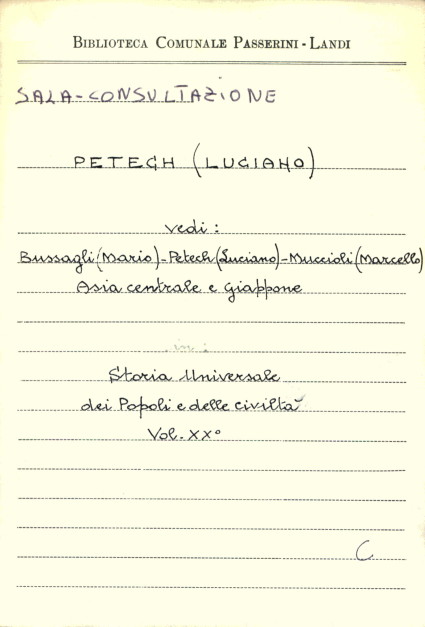 BIBLIOTECA COMUNALE PASSERINI - LANDI
SALA-CONSULTAZIONE
PETECH (LUCIANO)
vedi:
Bussagli (Mario) - Petech (Luciano) - Muccioli (Marcello)
Asia centrale e Giappone
in:
Storia Universale
dei Popoli e delle civiltà
Vol. XX°
C